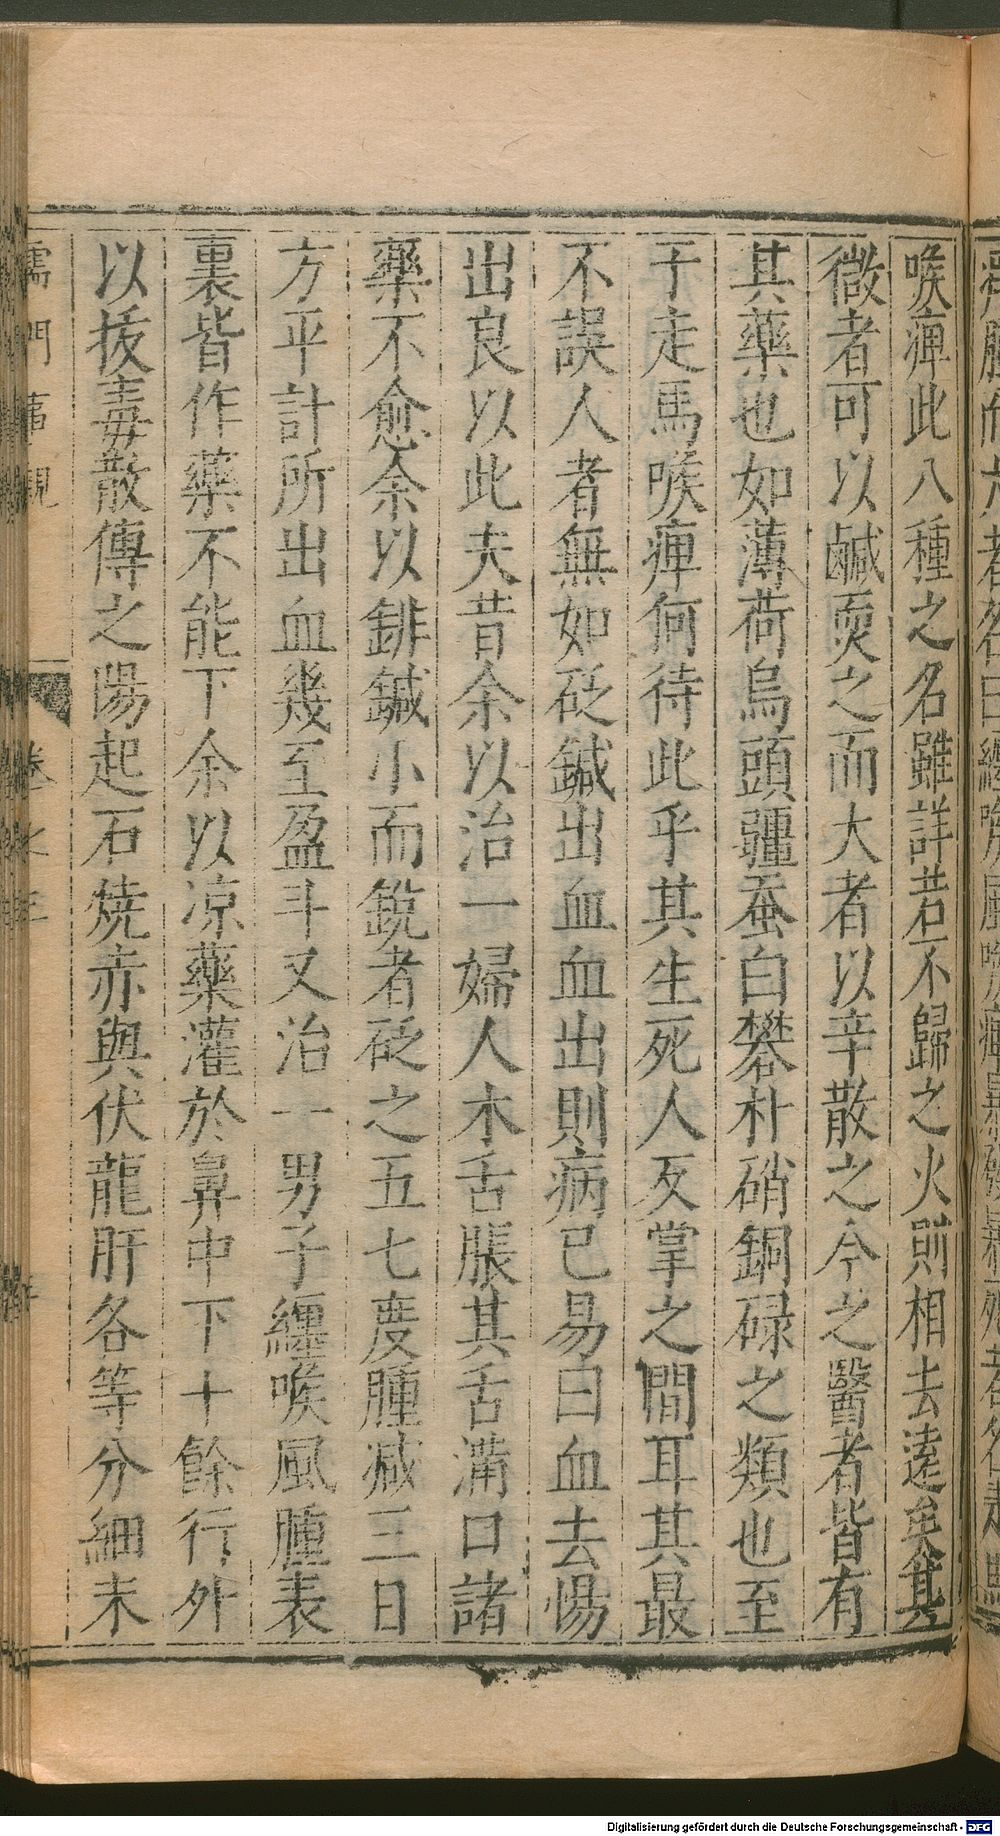 喉痺此八種之名雖詳若不歸之火則相去遠矣其
微者可以鹹耎之而大者以辛散之今之醫者皆有
其藥也如薄荷烏頭疆蚕白礬朴硝銅碌之類也至
于走馬喉痺何待此乎其生死人反掌之間耳其最
不誤人者無如砭鍼出血血出則病已易曰血去惕
出良以此夫昔余以治一婦人木舌脹其舌滿口諸
藥不愈余以鋛鍼小而銳者砭之五七度腫减三日
方平計所出血幾至盈斗又治一男子纏喉風腫表
裏皆作藥不能下余以凉藥灌於鼻中下十餘行外
以拔毒散傅之陽起石燒赤與伏龍肝各等分細末
儒門事親
卷之三
Digitalisierung gefördert durch die Deutsche Forschungsgemeinschaft - DFG